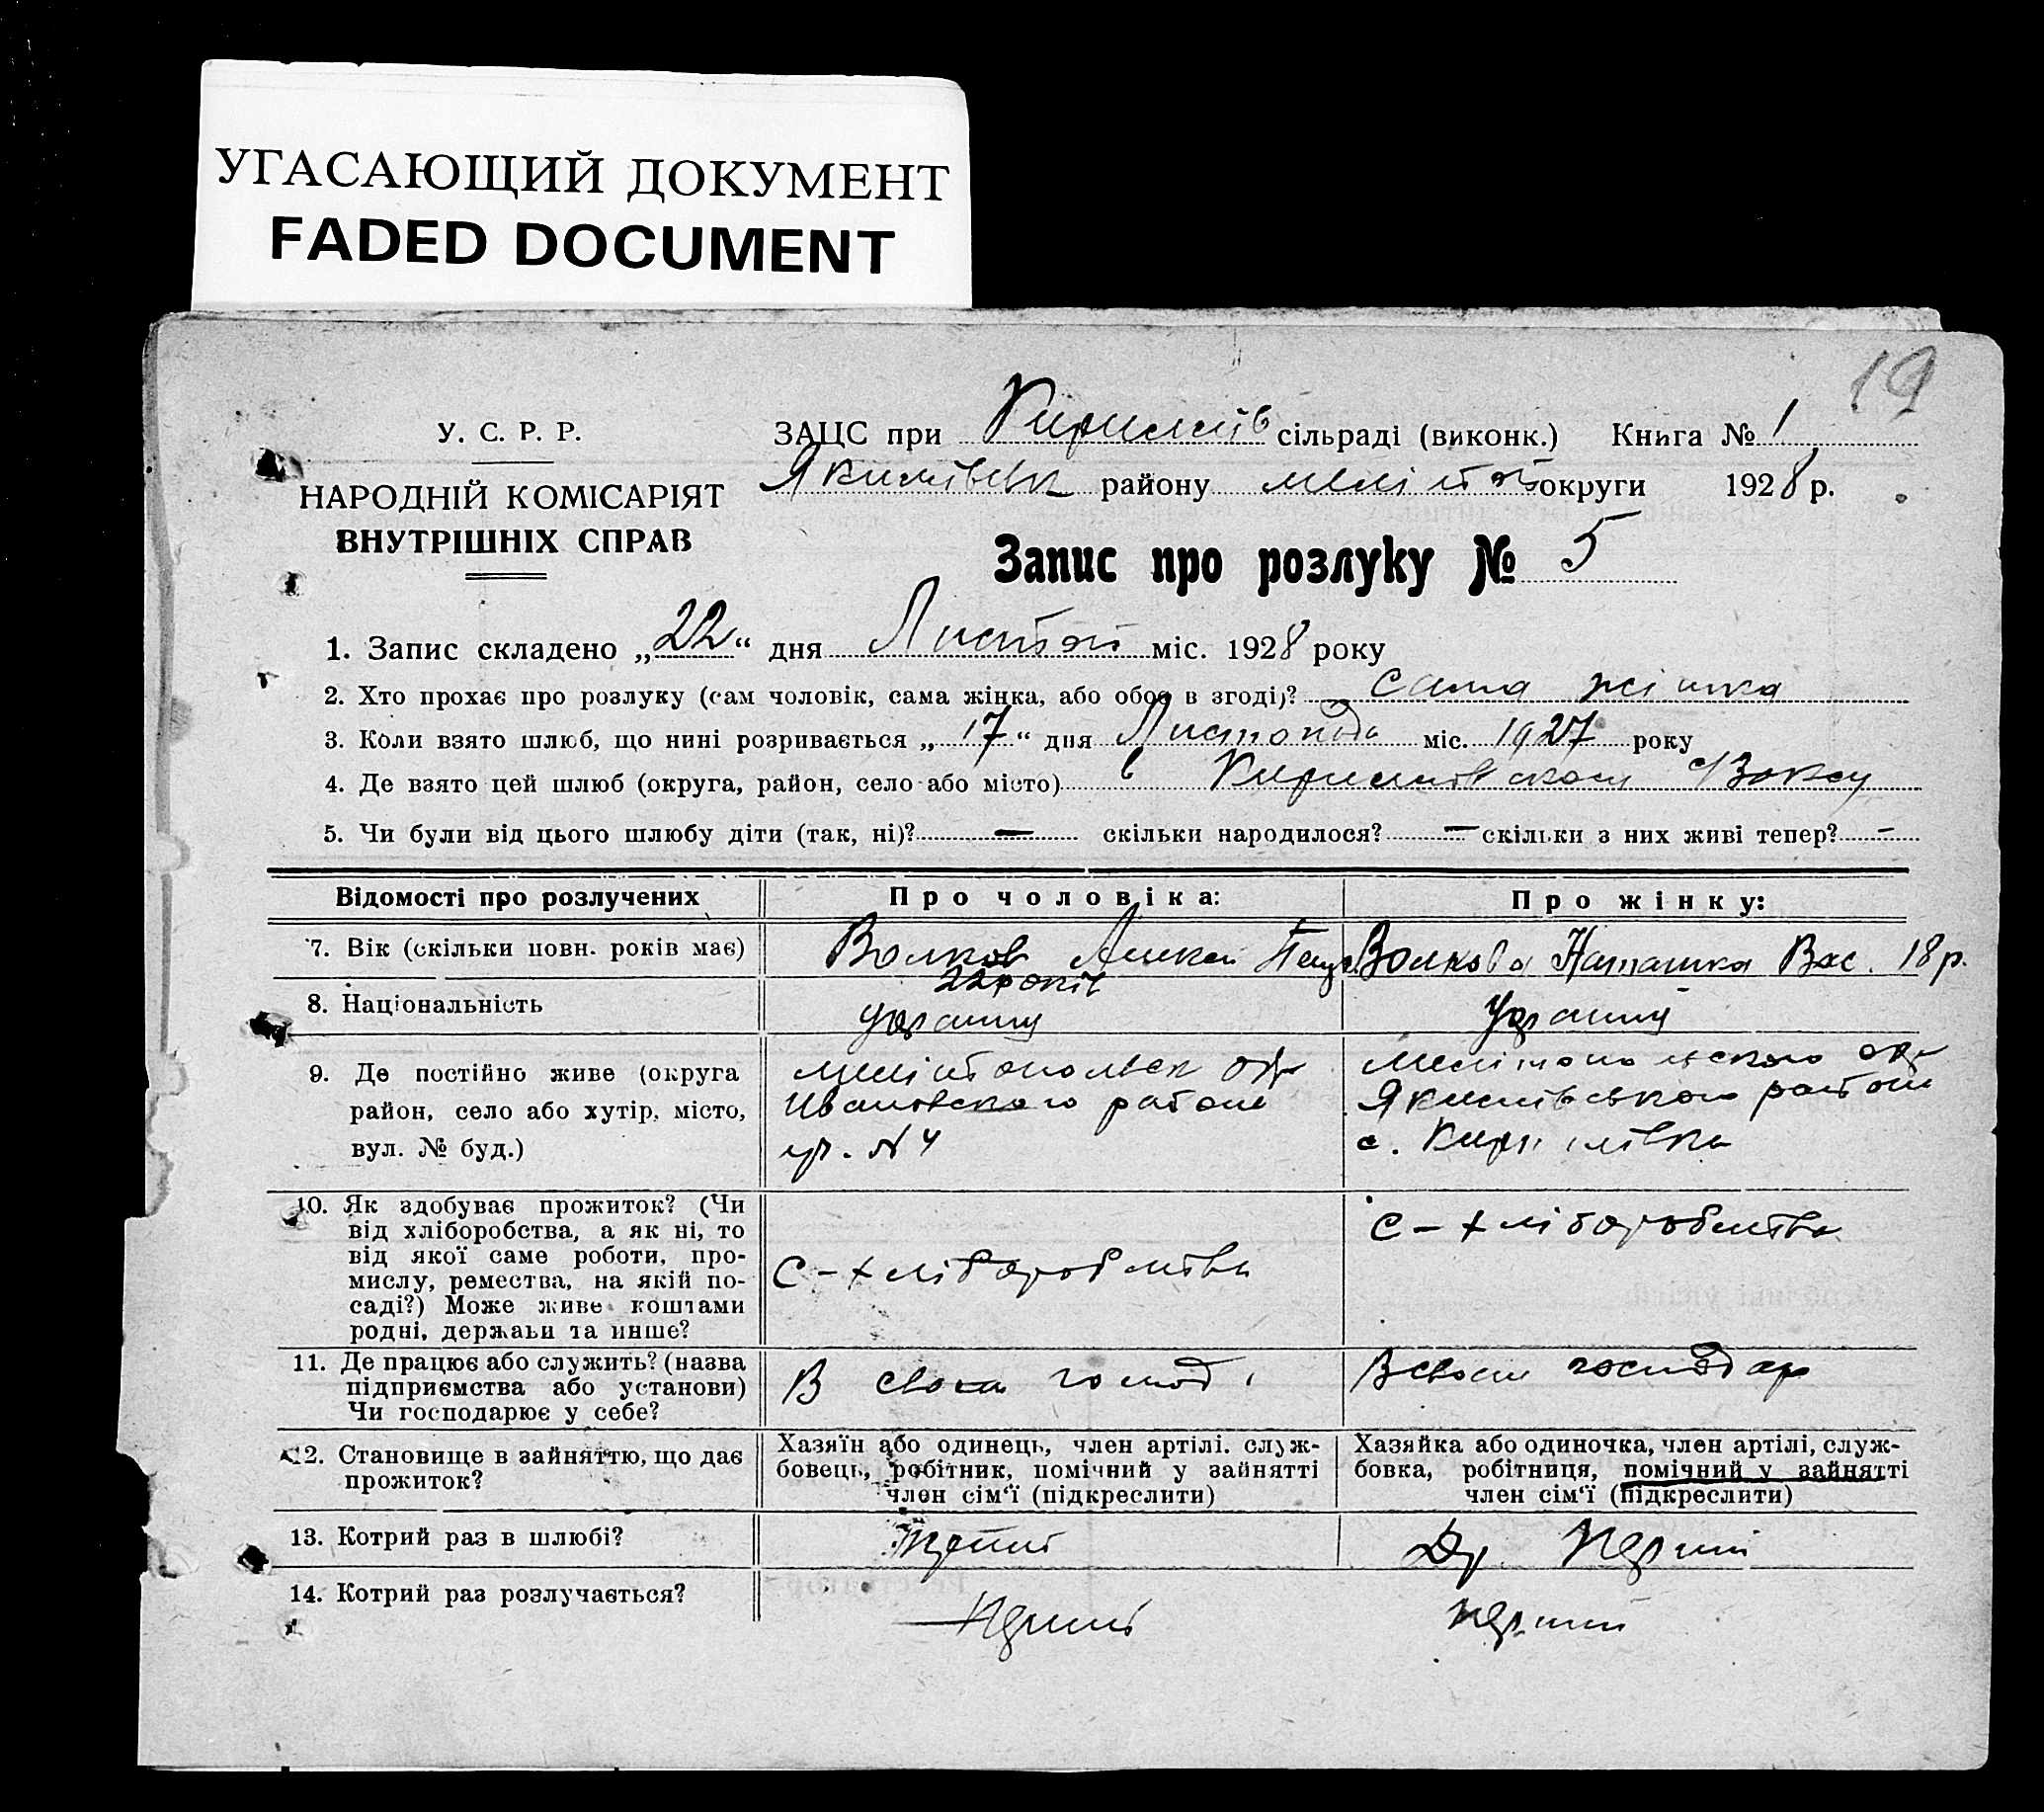 УГАСАЮЩИЙ ДОКУМЕНТ
FADED DOCUMENT
19
У. С. Р. Р.
НАРОДНІЙ КОМІСАРІЯТ
ВНУТРІШНІХ СПРАВ
ЗАЦС при Кирилів сільраді (виконк.) Книга № 1
Якимівськ району меліт округи 1928 р.
Запис про розлуку № 5
1. Запис складено „22“ дня Листоп міс. 1928 року
2. Хто прохає про розлуку (сам чоловік, сама жінка, або обоє в згоді)? сама жінка
3. Коли взято шлюб, що нині розривається „17“ дня Листопада міс. 1927 року
4. Де взято цей шлюб (округа, район, село або місто) в Кирилівском
5. Чи були від цього шлюбу діти (так, ні)? — скільки народилося? — скільки з них живі тепер? -
Відомості про розлучених Про чоловіка: Про жінку:
7. Вік (скільки повн. років має) Волков 22 років Волкова Наташка Вас. 18 р.
8. Національність
9. Де постійно живе (округа район, село або хутір, місто, вул. № буд.)
мелітопольск окр
Ивановского район
№ 4
Мелітопольского окр
Якимівського район
с. Кирилівка
10. Як здобуває прожиток? (Чи
від хліборобства, а як ні, то
від якої саме роботи, про-
мислу, ремества, на якій по-
саді?) Може живе коштами
родні, держави та инше?
С-хліборобства
С-хліборобства
11. Де працює або служить? (назва
підприємства або установи)
Чи господарює у себе?
В своем господ.
В своем господар
12. Становище в зайняттю, що дає
прожиток?
Хазяїн або одинець, член артілі. служ-
бовець, робітник, помічний у зайнятті
член сім'ї (підкреслити)
Хазяйка або одиночка, член артілі, служ-
бовка, робітниця, помічний у зайнятті
член сім'ї (підкреслити)
13. Котрий раз в шлюбі? Др. Перший
14. Котрий раз розлучається? Перший перший